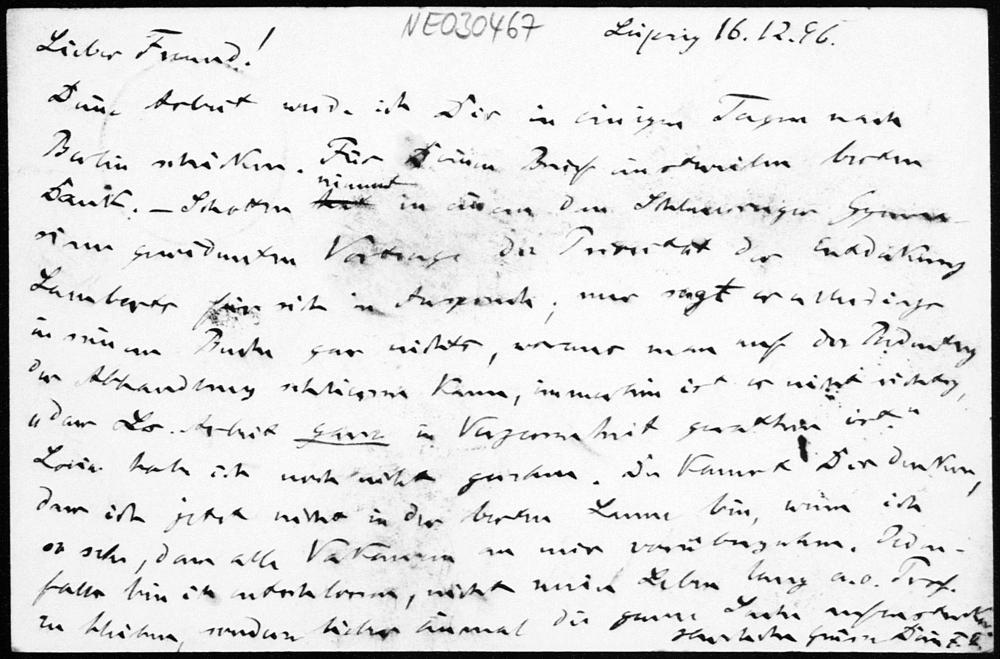 NE030467
Leipzig 16.12.96.
Lieber Freund!
Deine Arbeit werde ich Dir in einigen Tagen nach
Berlin schicken. Für Deinen Brief einstweilen besten
nimmt
Dank. – in einem dem Schleusinger Gymna-
sium gewidmeten Vortrage die Priorität der Entdeckung
Lamberts für sich in Anspruch; nur sagt er allerdings
in seinem Buche gar nichts, woraus man auf die Bedeutung
der Abhandlung schliessen kann, immerhin ist es nicht richtig,
„dass Ls. Arbeit ganz in Vergessenheit gerathen ist."
habe ich noch nicht gesehen. Du kannst Dir denken,
dass ich jetzt nicht in der besten Laune bin, wenn ich
so sehe, dass alle Vakanzen an mir vorübergehen. Jeden-
falls bin ich entschlossen, nicht mein Leben lang a.o. Prof.
zu bleiben, sondern lieber einmal die ganze Sache
Herzliche Grüsse Dein F. E.